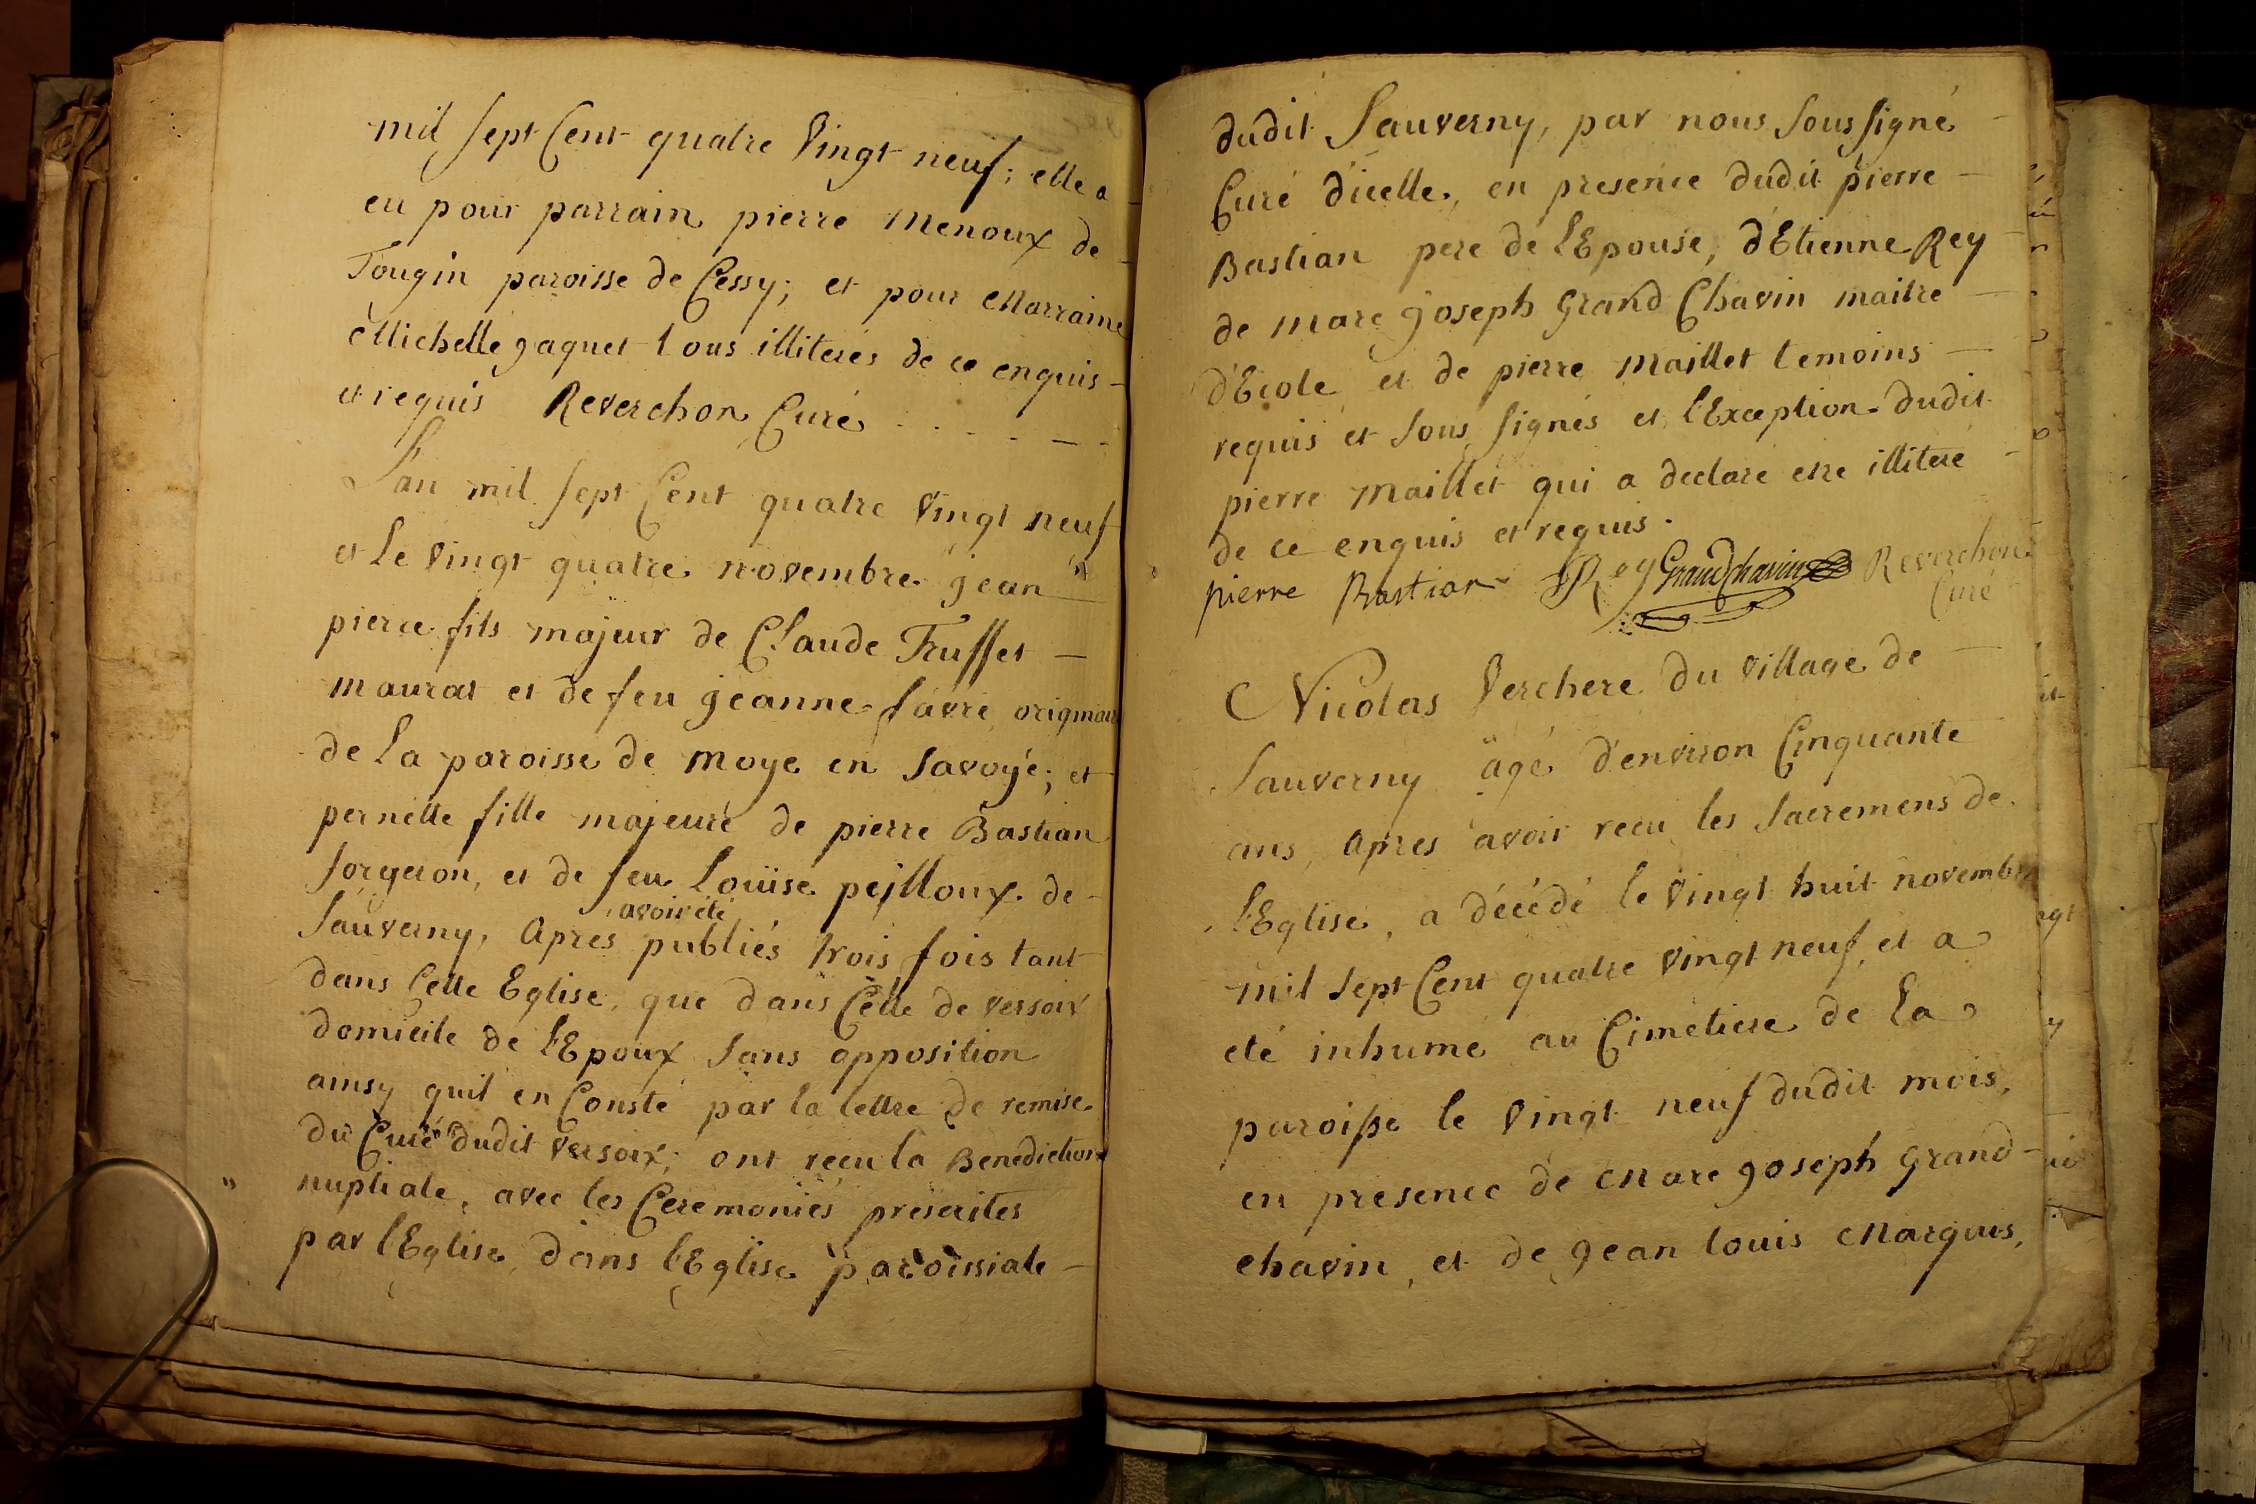 mil sept Cent quatre vingt neuf; elle a
eu pour parrain pierre Menoux de
Tougin paroisse de Cessy; et pour Marraine
Michelle jaquet tous illiterés de ce enquis
et requis Reverchon Curé
L'an mil sept Cent quatre vingt neuf
et le vingt quatre novembre jean
pierre fils majeur de Claude Truffet
maurat et de feu jeanne favre
de la paroisse de Moye en Savoye; et
pernette fille majeure de pierre Bastian
forgeron, et de feu Louise peilloux de
avoir été
Sauverny, apres publiés trois fois tant
dans Cette Eglise, que dans Celle de versoix
domicile de l'Epoux sans opposition
ainsy quil en Conste par la lettre de remise
du Curé dudit versoix; ont reçu la Benediction
nuptiale, avec les Ceremonies prescrites
par l'Eglise dans l'Eglise paroissiale
dudit Sauverny, par nous Sous signé
Curé d'icelle, en presence dudit pierre
Bastian pere de l'Epouse, d'Etienne Rey
de marc joseph Grand Chavin maitre
d'Ecole et de pierre Maillet temoins
requis et sous signés et l'Exception dudit
pierre Maillet qui a declaré etre illiteré
de ce enquis et requis.
pierre Bastian Rey Grandchavin Reverchon
Curé
Nicolas Verchere du village de
Sauverny âgé d'environ Cinquante
ans, apres avoir reçu les Sacremens de
l'Eglise, a décédé le vingt huit novembre
mil sept Cent quatre vingt neuf, et a
eté inhumé au Cimetiere de la
paroisse le vingt neuf dudit mois,
en presence de Marc joseph Grand
chavin, et de jean louis Marquis,